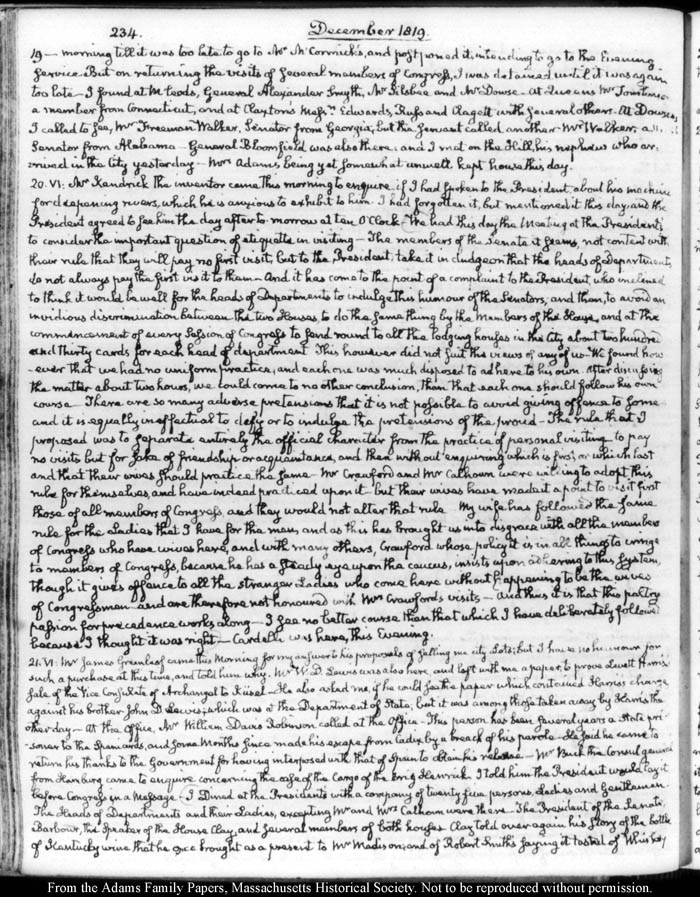 234. December 1819.
19 — morning till it was too late to go to Mr McCormick's, and postponed it intending to go to the Evening
service. But on returning the visits of several members of Congress, I was detained until it was again
too late — I found at McLeods, General Alexander Smyth, Mr Silsbee and Mr Dowse — at Queens Mr Tomlinson
a member from Connecticut, and at Claytons Messrs Edwards, Russ and Clagett with several others. At Dowson's
I called to see, Mr Freeman Walker, Senator from Georgia, but the servant called another Mr Walker, a
Senator from Alabama — General Bloomfield was also there; and I met on the Hill, his nephew who ar-
rived in the City yesterday — Mrs Adams, being yet somewhat unwell kept house this day.
20. VI: Mr Kendrick the inventor came this morning to enquire if I had spoken to the President, about his machine
for deepening rivers, which he is anxious to exhibit to him. I had forgotten it, but mentioned it this day, and the
President agreed to see him the day after to-morrow at ten O'Clock — We had this day the Meeting at the President's
to consider the important question of etiquette in visiting — The members of the Senate it seems, not content with
their rule that they will pay no first visit, but to the President, take it in dudgeon that the heads of Departments
do not always pay the first visit to them — And it has come to the point of a complaint to the President, who inclined
to think it would be well for the heads of Departments to indulge this humour of the Senators, and then, to avoid an
invidious discrimination between the two Houses, to do the same thing by the Members of the House, and at the
commencement of every Session of Congress to send round to all the lodging houses in the City about two hundred
and thirty cards for each head of department. This however did not suit the views of any of us — We found how-
-ever that we had no uniform practice, and each one was much disposed to adhere to his own. After discussing
the matter about two hours, we could come to no other conclusion, than that each one should follow his own
course — There are so many adverse pretensions that it is not possible to avoid giving offence to some
and it is equally ineffectual to defy or to indulge the pretensions of the proud — The rule that I
proposed was to separate entirely the official character from the practice of personal visiting. To pay
no visits but for sake of friendship or acquaintance, and then without enquiring which is first or which last
and that their wives should practice the same — Mr Crawford and Mr Calhoun were willing to adopt this
rule for themselves, and have indeed practiced upon it. But their wives have made it a point to visit first
those of all members of Congress, and they would not alter that rule. My wife has followed the same
rule for the Ladies that I have for the men, and as this has brought us into disgrace with all the members
of Congress who have wives here, and with many others, Crawford whose policy it is in all things to cringe
to members of Congress, because he has a steady eye upon the caucus, insists upon adhering to this system,
though it gives offence to all the stranger Ladies who come here without happening to be the wives
of Congressmen and are therefore not honoured with Mrs Crawford's visits — And thus it is that this paltry
passion for precedence works along — I see no better course than that which I have deliberately followed
because I thought it was right — Cardelli was here, this Evening.
21. VI: Mr James Greenleaf came this Morning for my answer to his proposals of selling me city Lots; but I have no humour for
such a purchase at this time, and told him why. Mr W. D. Lewis was also here, and left with me a paper to prove Levett Harris's
sale of the Vice Consulate of Archangel to Rüsel — He also asked me, if he could see the paper which contained Harris's charge
against his brother John D. Lewis, which was at the Department of State, but it was among those taken away by Harris the
other day — At the Office, Mr William Davis Robinson called at the Office — This person has been several years a State pri-
soner to the Spaniards, and some Months since made his escape from Cadiz by a breach of his parole — He said he came to
return his thanks to the Government for having interposed with that of Spain to obtain his release — Mr Buck the Consul general
from Hamburg came to enquire concerning the case of the Cargo of the brig Henrick. I told him the President would lay it
before Congress in a Message — I Dined at the Presidents with a company of twenty five persons, Ladies and Gentlemen.
The Heads of Departments and their Ladies, excepting Mr and Mrs Calhoun were there — The President of the Senate
Barbour, the Speaker of the House Clay, and several members of both houses. Clay told over again his story of the bottle
of Kentucky wine that he once brought as a present to Mr Madison, and of Robert Smith's saying it tasted of Whiskey
From the Adams Family Papers, Massachusetts Historical Society. Not to be reproduced without permission.